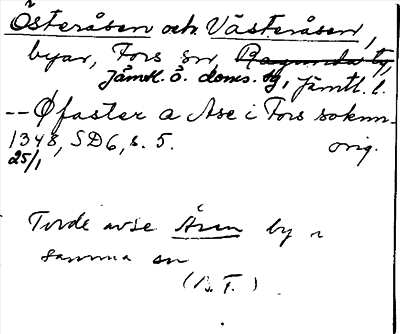 Österåsen och Västeråsen,
byar, Fors sn, Ragunda tg,
Jämtl. ö. doms. tg, Jämtl. l.
-- Øfaster a Ase i Fors soknn
1348, SD6, s. 5. orig.
25/1
Torde avse Åsen by i
samma sn
(B. F.)